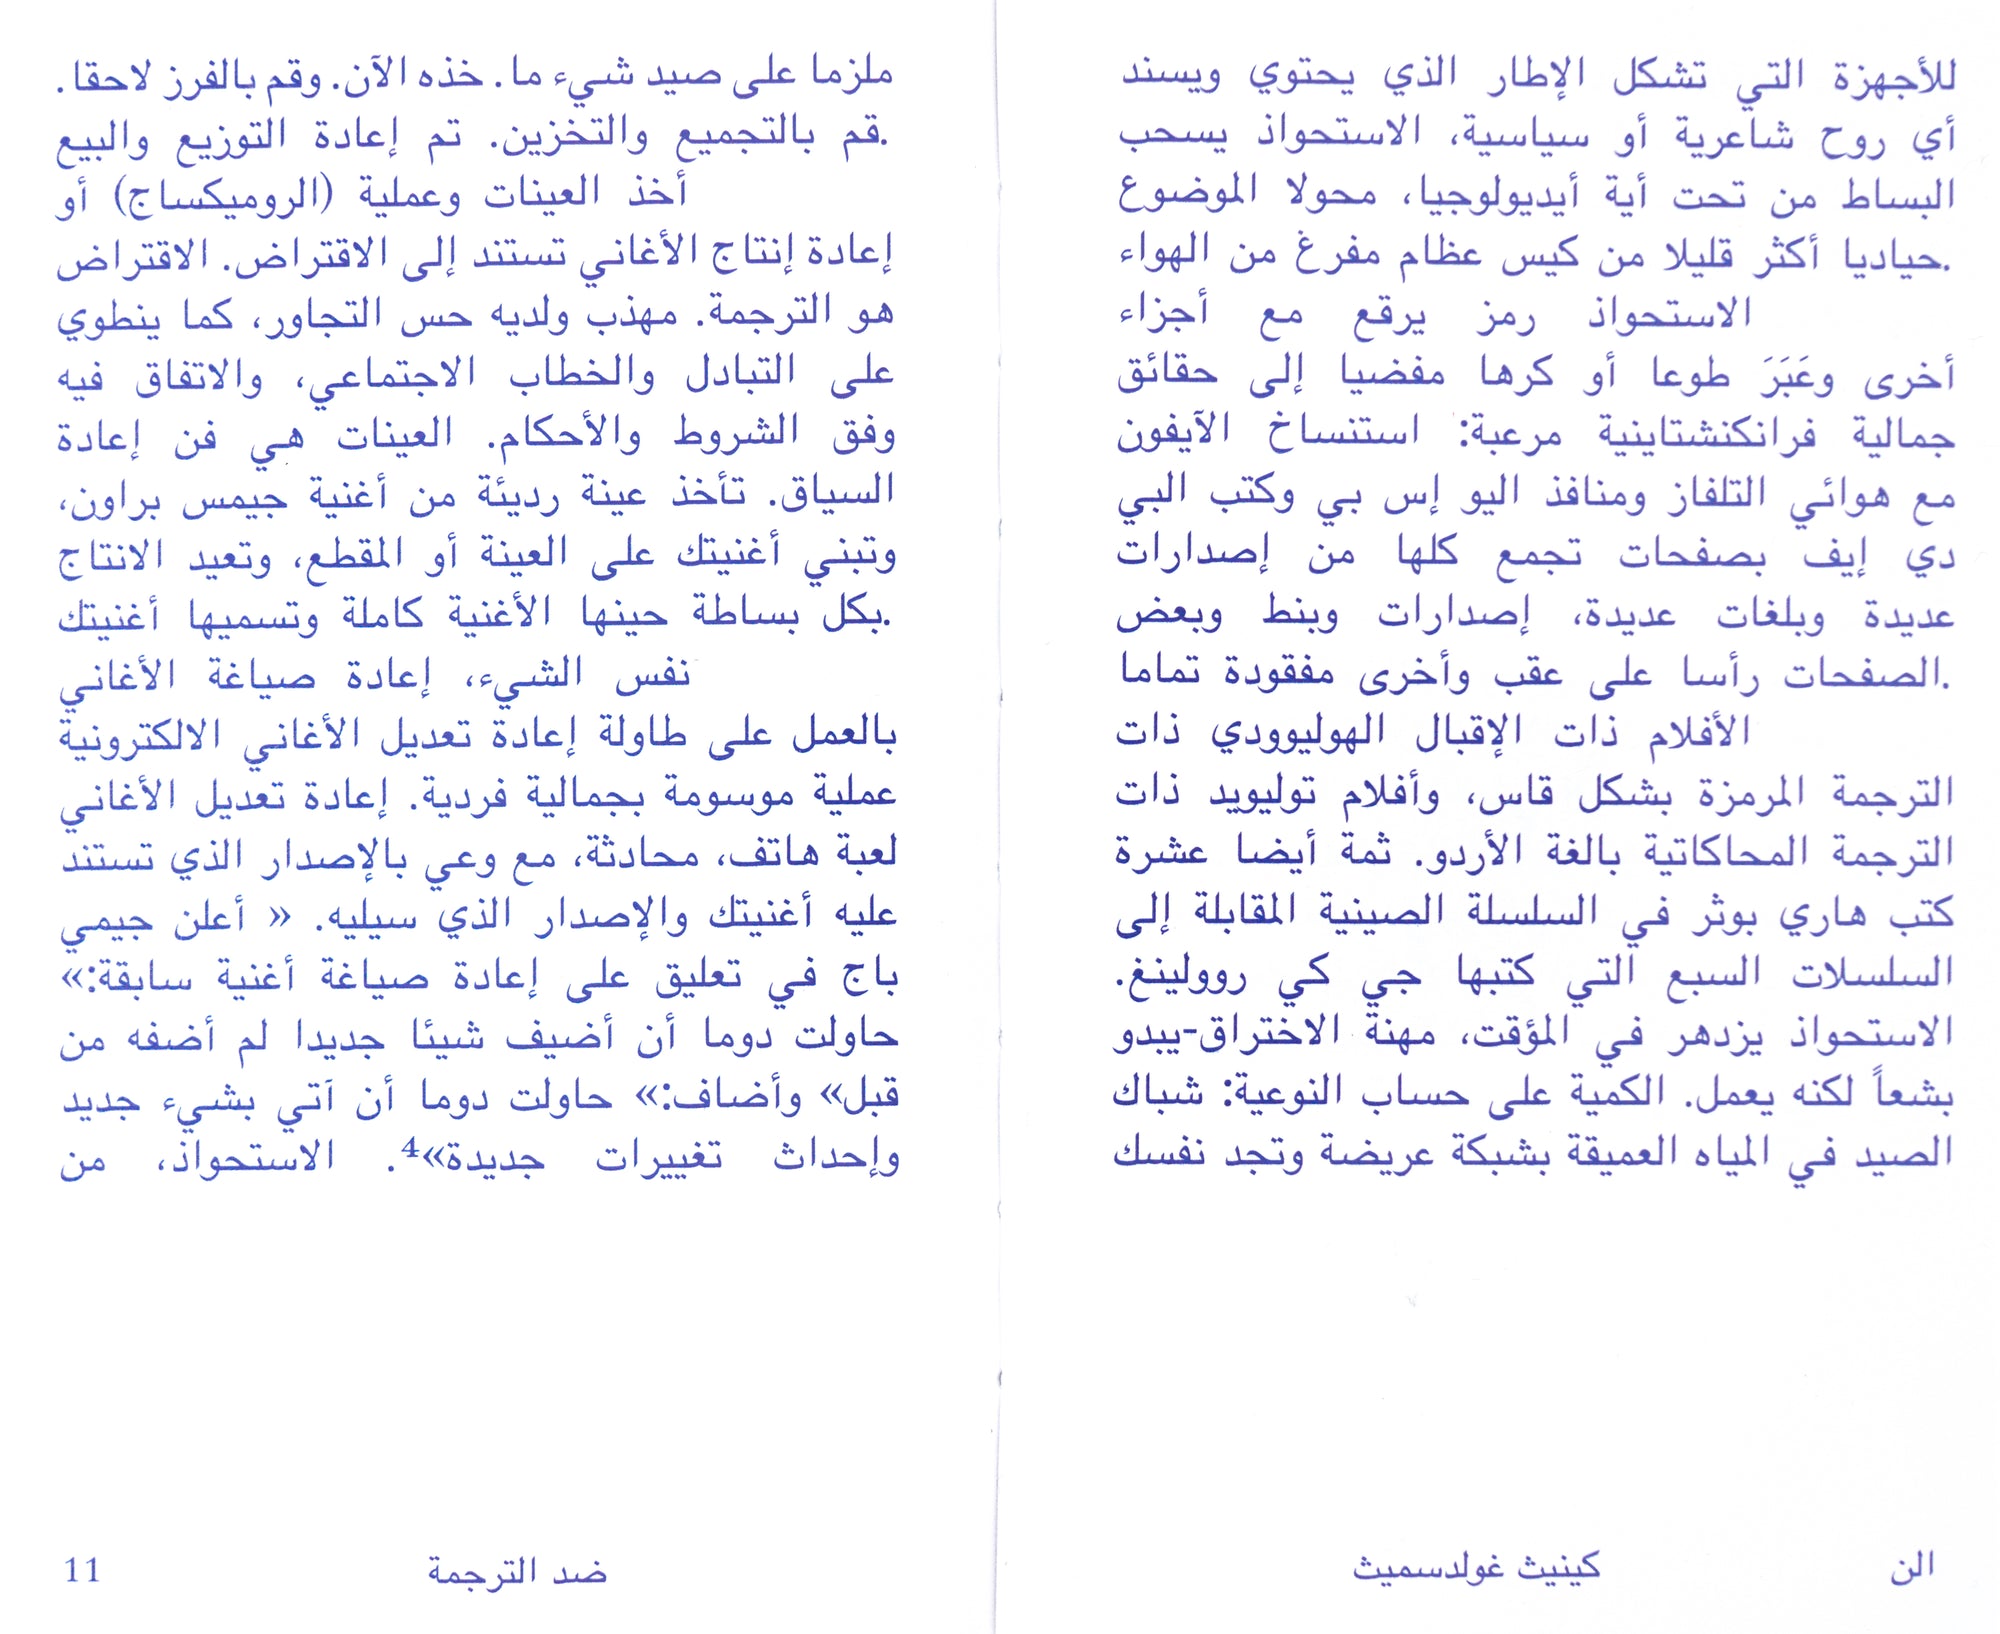 للأجهزة التي تشكل الإطار الذي يحتوي ويسند
أي روح شاعرية أو سياسية، الاستحواذ يسحب
البساط من تحت أية أيديولوجيا، محولا الموضوع
حياديا أكثر قليلا من كيس عظام مفرغ من الهواء.
الاستحواذ رمز يرقع مع أجزاء
أخرى وعَبَرَ طوعا أو كرها مفضيا إلى حقائق
جمالية فرانكنشتاينية مرعبة: استنساخ الآيفون
مع هوائي التلفاز ومنافذ اليو إس بي وكتب البي
دي إيف بصفحات تجمع كلها من إصدارات
عديدة وبلغات عديدة، إصدارات وبنط وبعض
الصفحات رأسا على عقب وأخرى مفقودة تماما.
الأفلام ذات الإقبال الهوليوودي ذات
الترجمة المرمزة بشكل قاس، وأفلام توليويد ذات
الترجمة المحاكاتية بالغة الأردو. ثمة أيضا عشرة
كتب هاري بوثر في السلسلة الصينية المقابلة إلى
السلسلات السبع التي كتبها جي كي روولينغ.
الاستحواذ يزدهر في المؤقت، مهنة الاختراق-يبدو
بشعاً لكنه يعمل. الكمية على حساب النوعية: شباك
الصيد في المياه العميقة بشبكة عريضة وتجد نفسك
الن
كينيث غولدسميث
ملزما على صيد شيء ما. خذه الآن. وقم بالفرز لاحقا.
قم بالتجميع والتخزين. تم إعادة التوزيع والبيع.
أخذ العينات وعملية (الروميكساج) أو
إعادة إنتاج الأغاني تستند إلى الاقتراض. الاقتراض
هو الترجمة. مهذب ولديه حس التجاور، كما ينطوي
على التبادل والخطاب الاجتماعي، والاتفاق فيه
وفق الشروط والأحكام. العينات هي فن إعادة
السياق. تأخذ عينة رديئة من أغنية جيمس براون،
وتبني أغنيتك على العينة أو المقطع، وتعيد الانتاج
بكل بساطة حينها الأغنية كاملة وتسميها أغنيتك.
نفس الشيء، إعادة صياغة الأغاني
بالعمل على طاولة إعادة تعديل الأغاني الالكترونية
عملية موسومة بجمالية فردية. إعادة تعديل الأغاني
لعبة هاتف، محادثة، مع وعي بالإصدار الذي تستند
عليه أغنيتك والإصدار الذي سيليه. « أعلن جيمي
باج في تعليق على إعادة صياغة أغنية سابقة:»
حاولت دوما أن أضيف شيئا جديدا لم أضفه من
قبل» وأضاف:» حاولت دوما أن آتي بشيء جديد
وإحداث تغييرات جديدة»⁴. الاستحواذ، من
ضد الترجمة
11